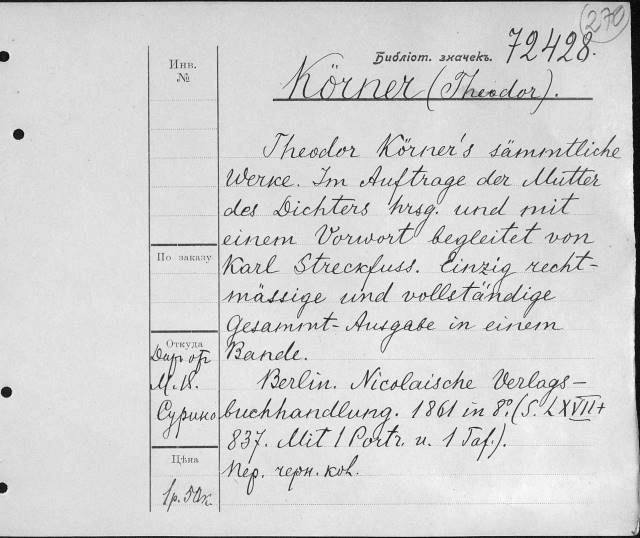 270
Библіот. значекъ. 72428.
Körner (Theodor).
Инв.
№
Theodor Körner's sämmtliche
Werke. Im Auftrage der Mutter
des Dichters hrsg. und mit
einem Vorwort begleitet von
Karl Streckfuss. Einzig recht-
mässige und vollständige
Gesammt-Ausgabe in einem
Bande.
Berlin. Nicolaische Verlags-
buchhandlung. 1861 in 8º. (S. LXVII+
837. Mit 1 Portr. u. 1 Taf.).
Пер. черн. кож.
По заказу
Откуда
Даръ от
М.
Сурино
Цѣна
1 р. 50 к.